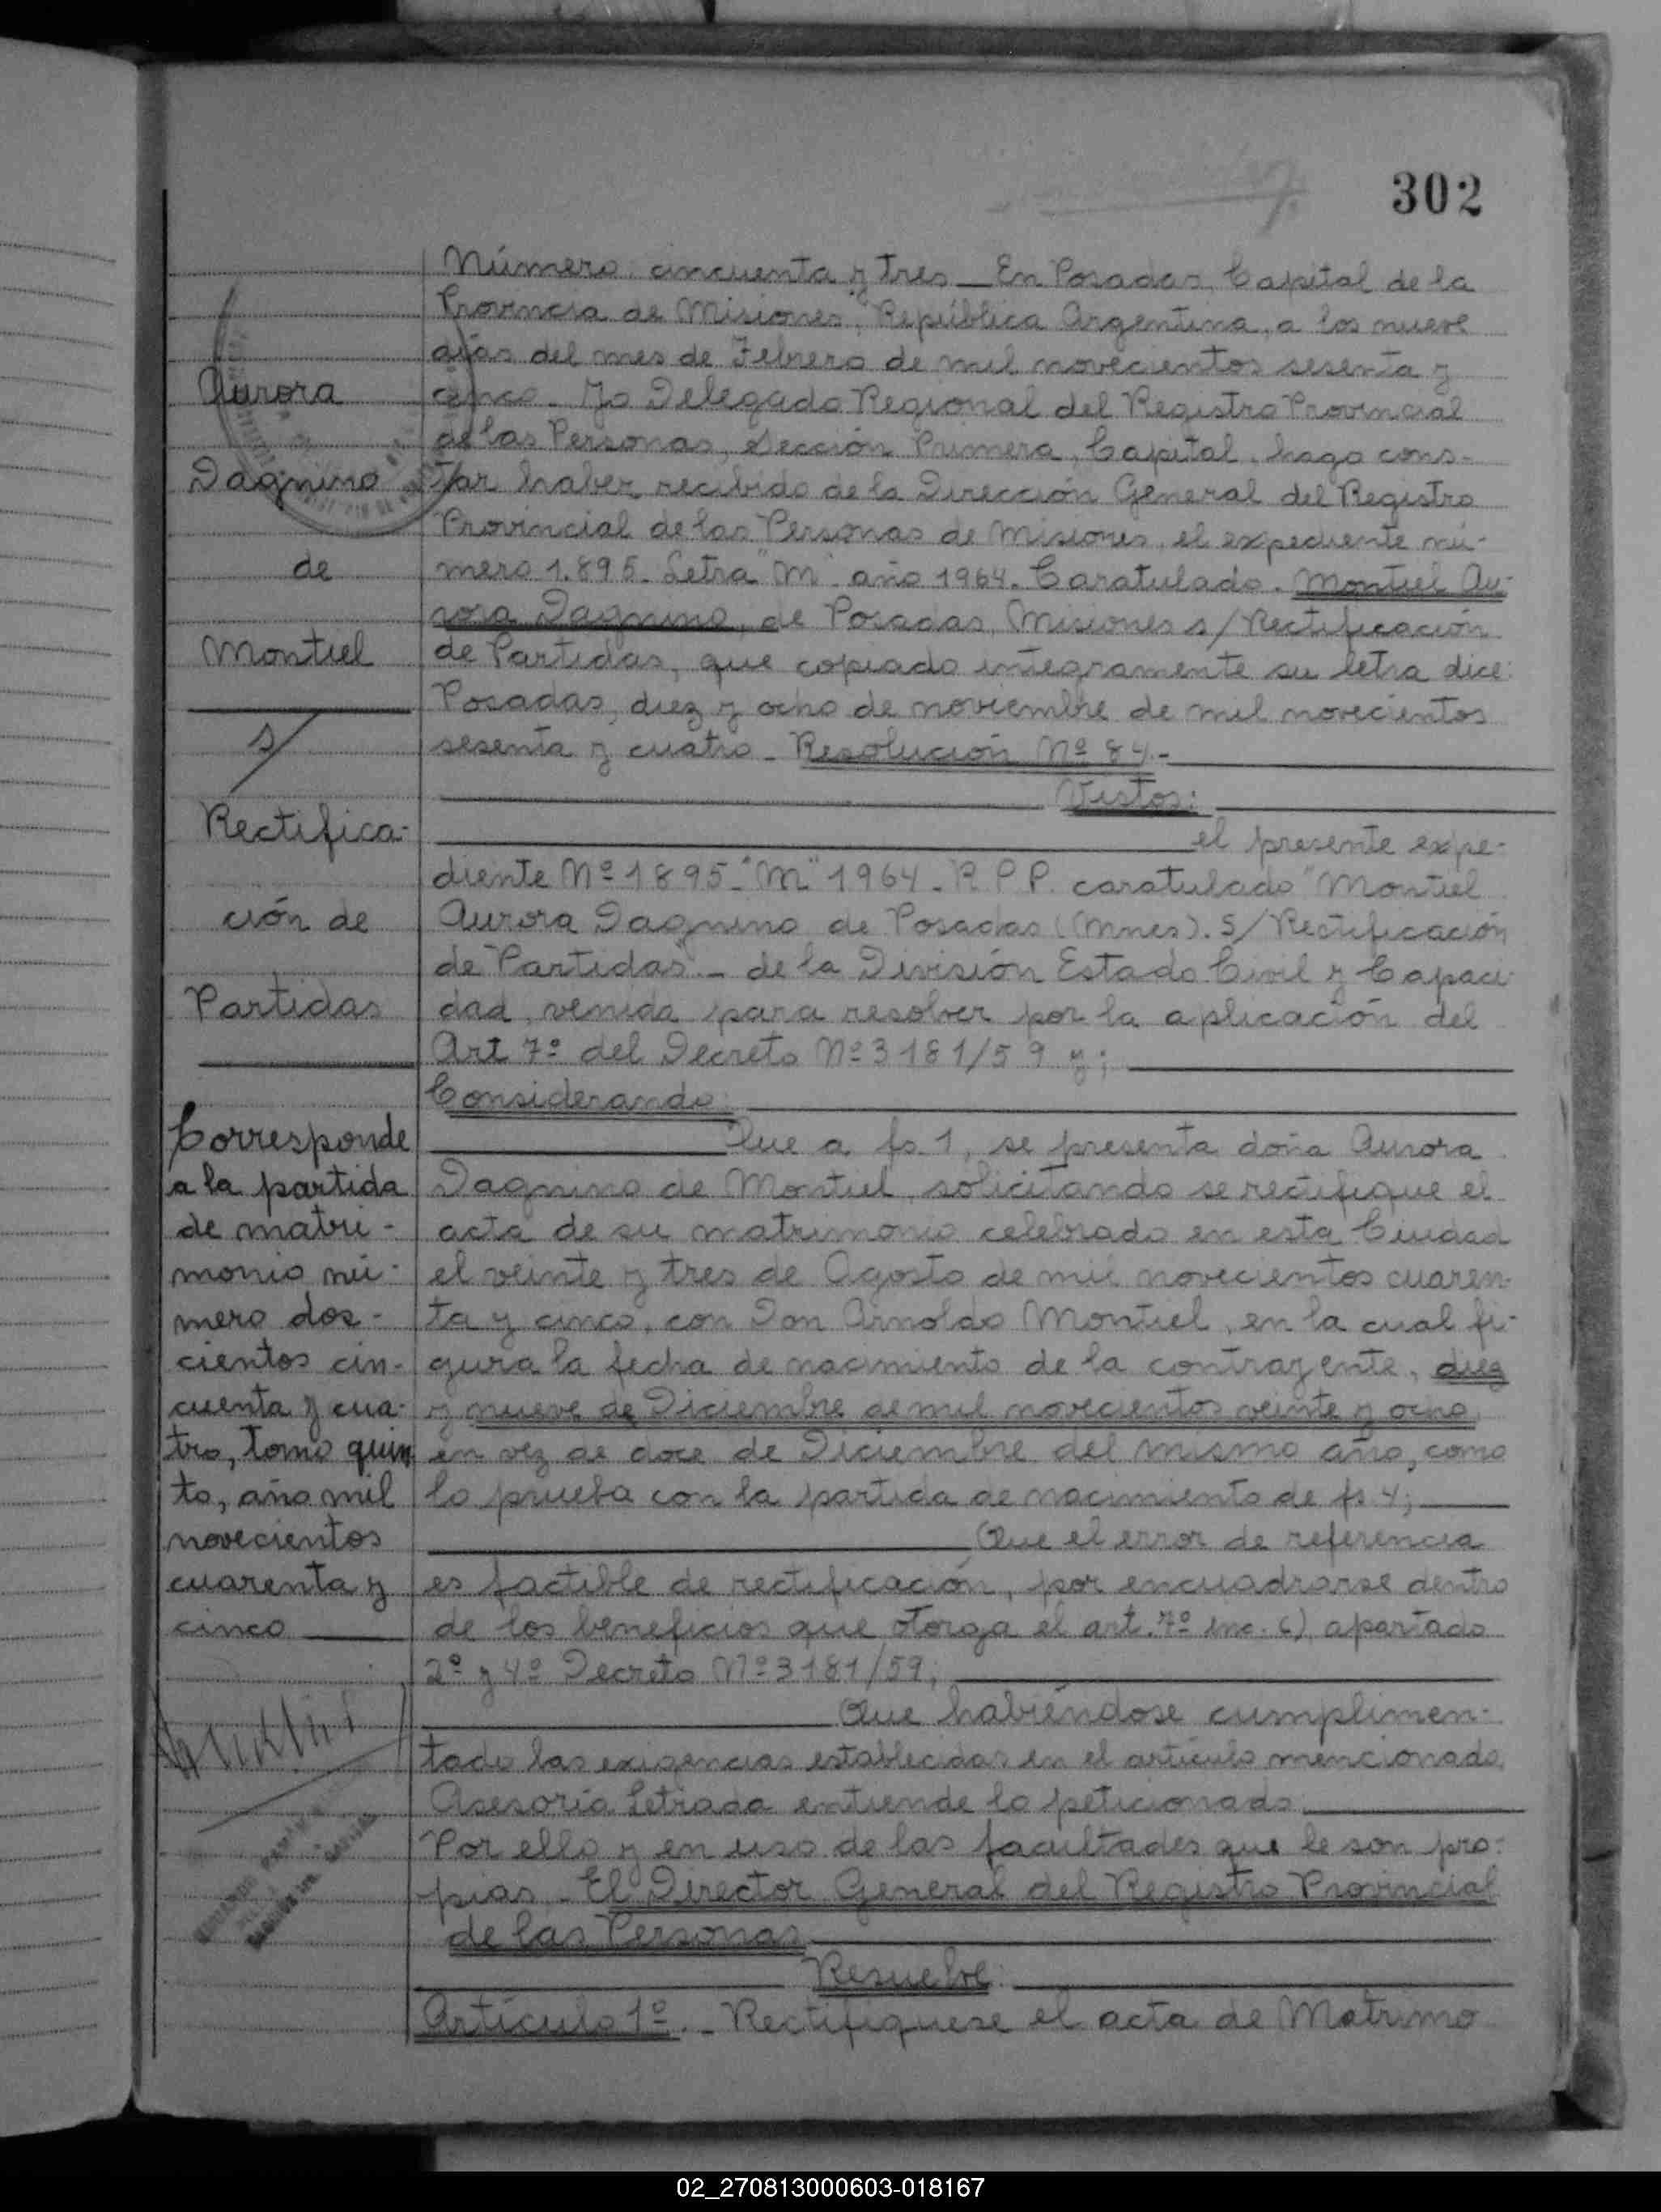 302
Número cincuenta y tres _ En Posadas, Capital de la
Provincia de Misiones, República Argentina, a los nueve
días del mes de Febrero de mil novecientos sesenta y
cinco _ Yo Delegado Regional del Registro Provincial
de las Personas, Sección Primera, Capital, hago cons-
tar haber recibido de la Dirección General del Registro
Provincial de las Personas de Misiones, el expediente nú-
mero 1.895 _ Letra "M" año 1964. Caratulado. Montiel Au-
rora Dagnino, de Posadas, Misiones s/ Rectificación
de Partidas, que copiado integramente su letra dice:
Posadas, diez y ocho de noviembre de mil novecientos
sesenta y cuatro _ Resolución Nº 84.-
Vistos:
el presente expe-
diente Nº 1895 _ "M" 1964 _ R.P.P. caratulado "Montiel
Aurora Dagnino de Posadas (Mnes). S/ Rectificación
de Partidas" _ de la División Estado Civil y Capaci-
dad, venido para resolver por la aplicación del
Art 7º del Decreto Nº 3181/59 y;
Considerando:
Que a fs. 1, se presenta doña Aurora
Dagnino de Montiel, solicitando se rectifique el
acta de su matrimonio celebrado en esta Ciudad
el veinte y tres de Agosto de mil novecientos cuaren-
ta y cinco, con Don Arnoldo Montiel, en la cual fi-
gura la fecha de nacimiento de la contrayente, diez
y nueve de Diciembre de mil novecientos veinte y ocho
en vez de doce de Diciembre del mismo año, como
lo prueba con la partida de nacimiento de fs. 4;
Que el error de referencia
es factible de rectificación, por encuadrarse dentro
de los beneficios que otorga el art. 7º inc. c) apartado
2º y 4º Decreto Nº 3181/59;
Que habiéndose cumplimen-
tado las exigencias establecidas en el artículo mencionado,
Asesoría Letrada entiende lo peticionado:
Por ello y en uso de las facultades que le son pro-
pias _ El Director General del Registro Provincial
de las Personas
Resuelve:
Artículo 1º. _ Rectifiquese el acta de Matrimo
Aurora
Dagnino
de
Montiel
s/
Rectifica-
ción de
Partidas
Corresponde
a la partida
de matri-
monio nú-
mero dos-
cientos cin-
cuenta y cua-
tro, tomo quin
to, año mil
novecientos
cuarenta y
cinco
02_270813000603-018167